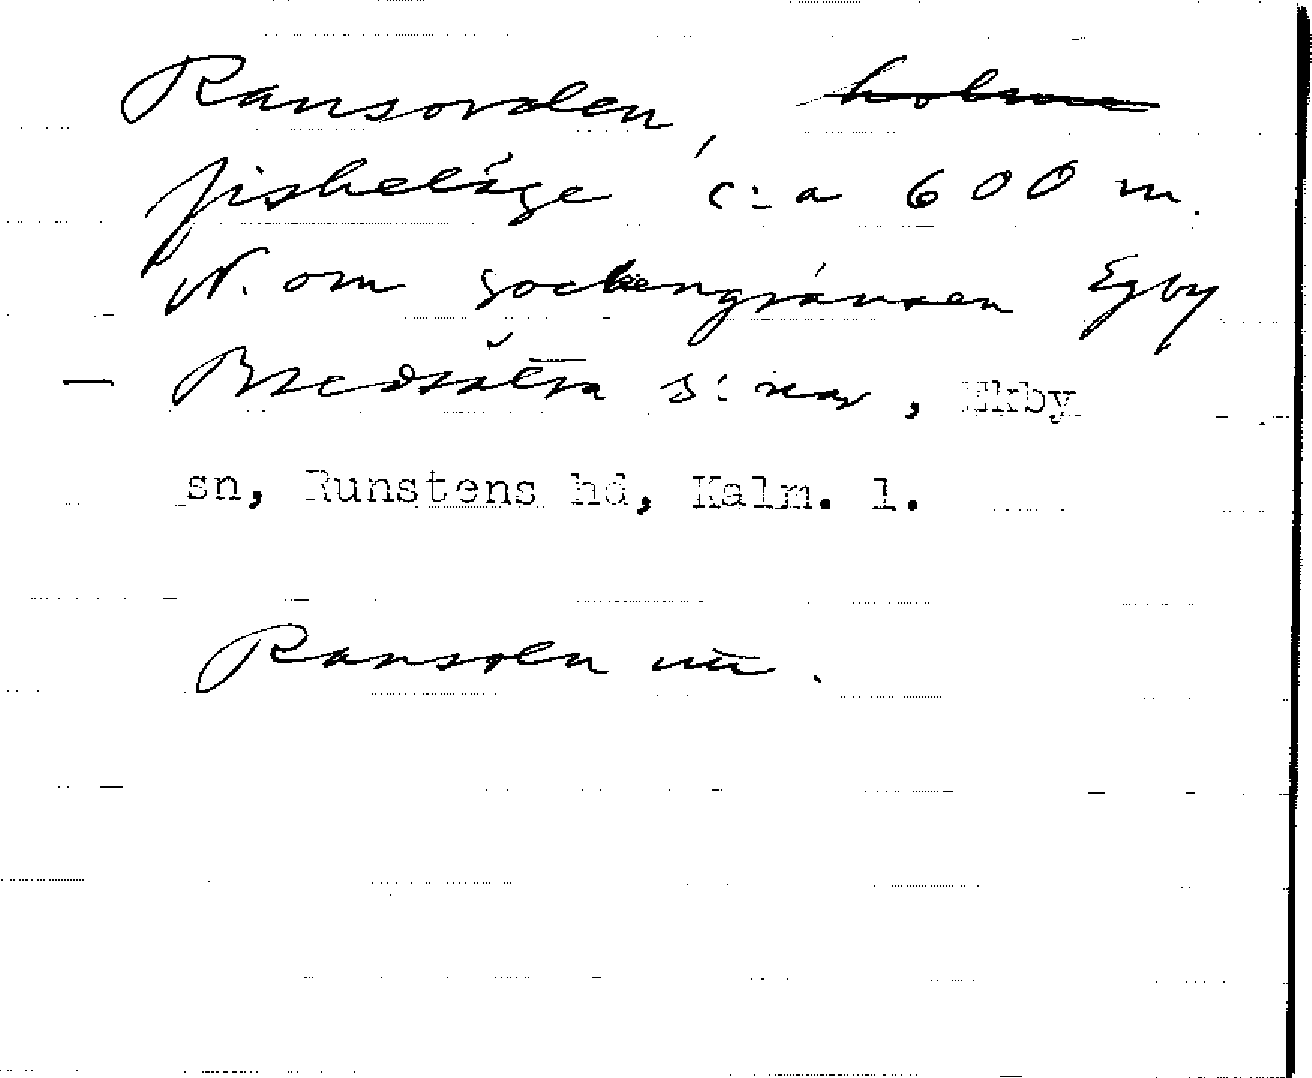 Ransorden, holme
fiskeläge c:a 600 m.
N. om sockengränsen Egby
– Bredsätra s:nar, Ekby
sn, Runstens hd, Kalm. l.
Ransoln